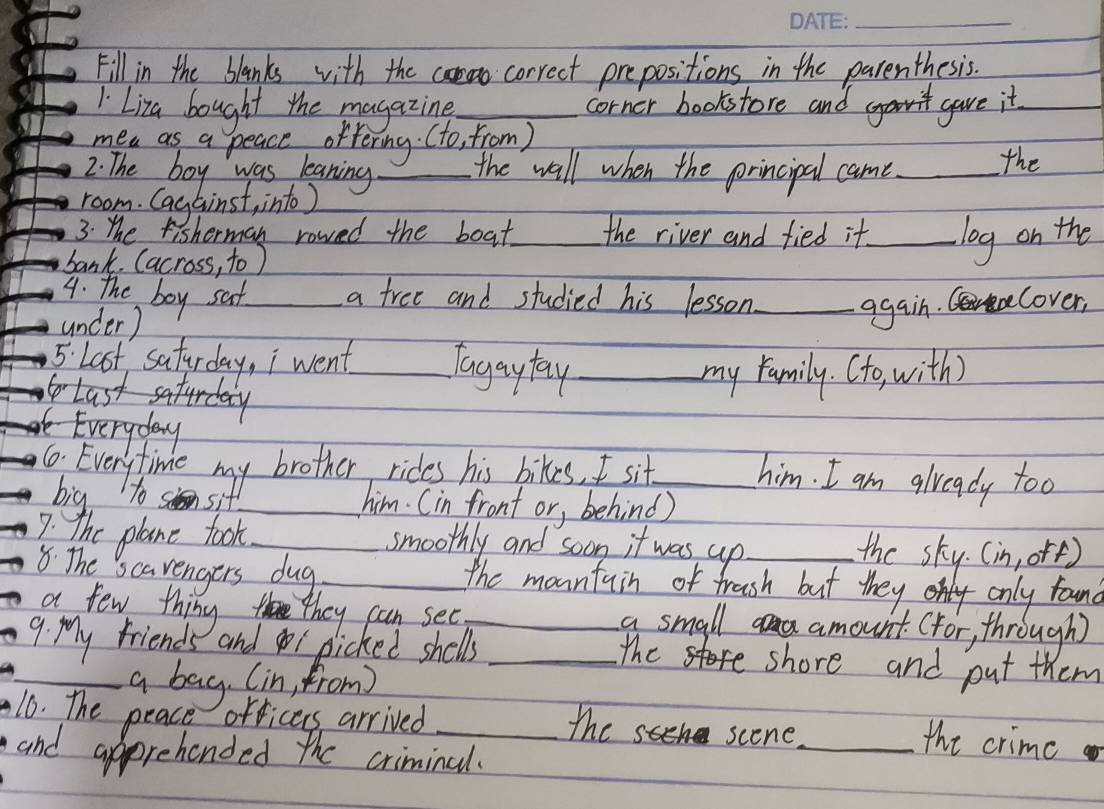 DATE:
Fill in the blanks with the correct prepositions in the parenthesis.
1. Liza bought the magazine ______ corner bookstore and gave it
me as a peace offering. (to, from)
2. The boy was leaning ______ the wall when the principal came ______ the
room. (aggainst, into)
3. The fisherman rowed the boat ______ the river and tied it ______ log on the
bank. (across, to)
4. The boy sat ______ a tree and studied his lesson ______ again. (over,
under)
5. Last saturday, i went ______ Tagaytay ______ my family. (to, with)
6. Last saturday
Everyday
6. Everytime my brother rides his bikes, I sit ______ him. I am already too
big to sit ______ him. (in front or, behind)
7. The plane took ______ smoothly and soon it was up ______ the sky. (in, off)
8. The scavengers dug ______ the mountain of trash but they only found
a few thing they can see ______ a small amount. (for, through)
9. My friends and i picked shells ______ the shore and put them
______ a bag. (in, from)
10. The peace officers arrived ______ the scene ______ the crime
and apprehended the criminal.